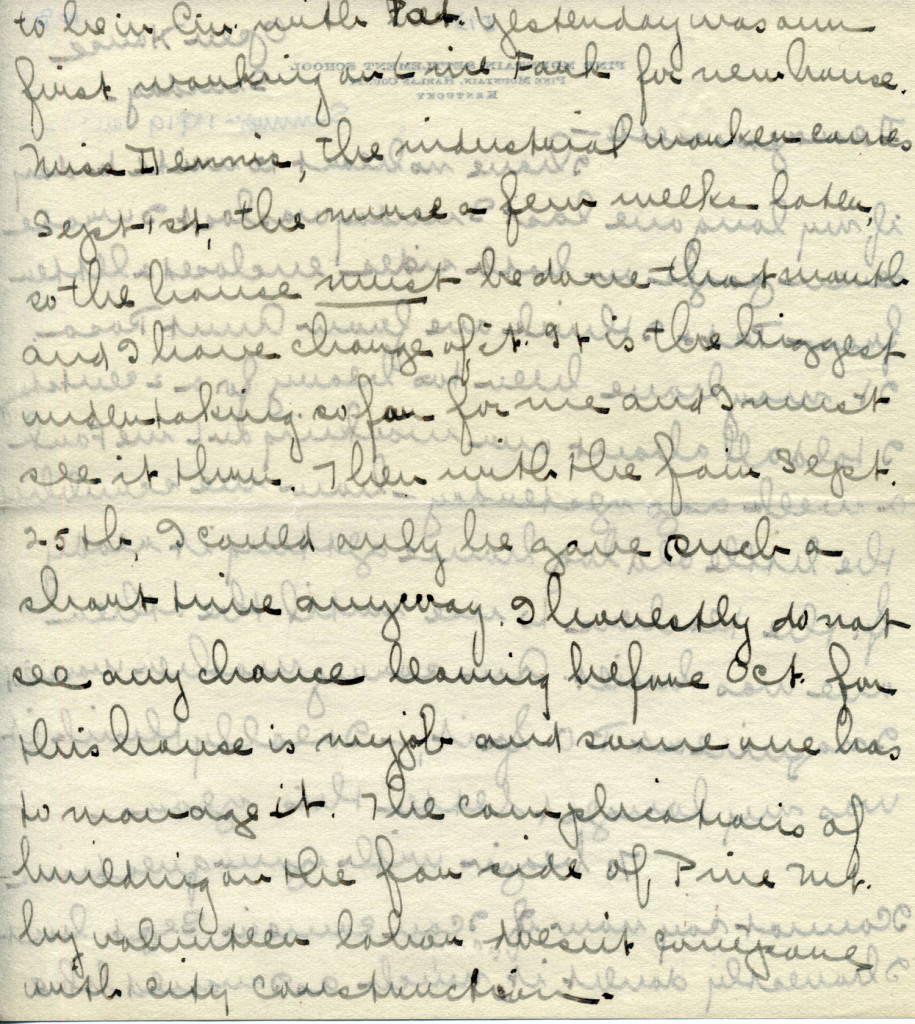 to be in Cin. with Pat. Yesterday was our
first working out in the Fork for new house.
Miss Dennis, the industrial worker comes
Sept 1st, the nurse a few weeks later,
so the house must be done that month
and I have charge of it. It is the biggest
undertaking so far for me and I must
see it thru. Then with the fair Sept.
25th, I could only be gone such a
short time anyway. I honestly do not
see any chance leaving before Oct. for
this house is my job and some one has
to manage it. The complications of
building on the far side of Pine Mt.
by volunteer labor doesn't compare
with city construction.